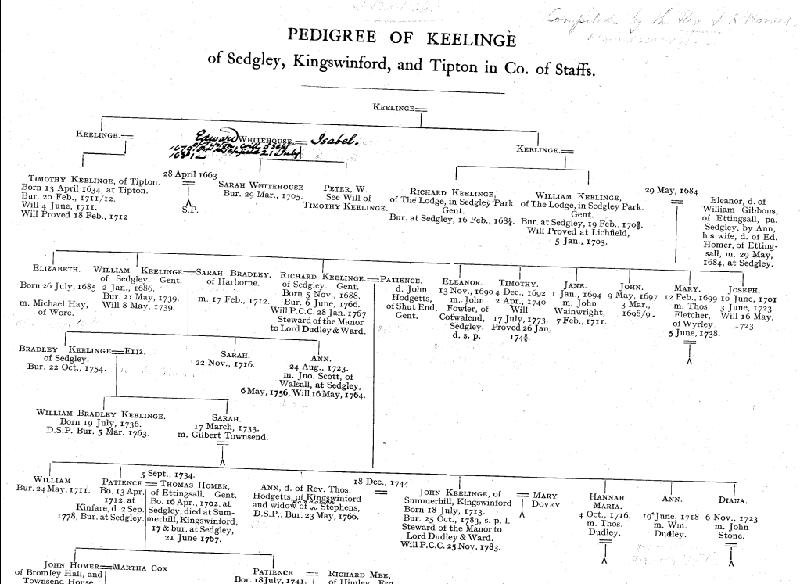 Compiled by the Rev.
PEDIGREE OF KEELINGE
of Sedgley, Kingswinford, and Tipton in Co. of Staffs.
KEELINGE
KEELINGE.
Edward WHITEHOUSE Isabel.
KEELINGE.
TIMOTHY KEELINGE, of Tipton.
Born 13 April 1634 at Tipton.
Bur. 20 Feb., 1711/12.
Will 4 June, 1711.
Will Proved 18 Feb., 1712
28 April 1663
S.P.
SARAH WHITEHOUSE
Bur. 29 Mar., 1705.
PETER, W.
See Will of
TIMOTHY KEELINGE.
RICHARD KEELINGE,
of The Lodge, in Sedgley Park
Gent.
Bur. at Sedgley, 16 Feb.,
WILLIAM KEELINGE,
of The Lodge, in Sedgley Park.
Gent.
Bur. at Sedgley, 19 Feb.,
Will Proved at Lichfield,
5 Jan., 1709.
29 May, 1684
Eleanor, d. of
William Gibbons,
of Ettingsall, pa.
Sedgley, by Ann,
his wife, d. of Ed.
Homer, of Etting-
sall, m. 29 May,
1684, at Sedgley.
ELIZABETH.
Born 26 July, 1685
m. Michael Hay,
of Ware.
WILLIAM KEELINGE
of Sedgley. Gent.
2 Jan., 1686.
Bur. 21 May, 1739.
Will 8 May, 1739.
SARAH BRADLEY.
of Harborne.
m. 17 Feb., 1712.
RICHARD KEELINGE
of Sedgley. Gent.
Born 5 Nov., 1688.
Bur. 6 June, 1766.
Will P.C.C. 28 Jan. 1767
Steward of the Manor
to Lord Dudley & Ward.
PATIENCE.
d. John
Hodgetts,
of Shut End.
Gent.
ELEANOR.
13 Nov., 1690
m. John
Fowler, of
Cotwalend,
Sedgley.
d. s. p.
TIMOTHY.
4 Dec., 1692
2 Apr., 1740
Will
17 July, 1773
Proved 26 Jan.
JANE.
1 Jan., 1694
m. John
Wainwright,
7 Feb., 1711.
JOHN.
9 May, 1697
3 Mar.,
1698/9.
MARY.
12 Feb., 1699
m. Thos
Fletcher,
of Wyrley
5 June, 1738.
JOSEPH.
10 June, 1701
3 June, 1723
Will 16 May,
1723
BRADLEY KEELINGE
of Sedgley.
Bur. 22 Oct., 1754.
ELIZ.
SARAH.
22 Nov., 1716.
ANN.
24 Aug., 1723.
m. Jno. Scott, of
Walsall, at Sedgley,
6 May, 1756. Will 16 May, 1764.
WILLIAM BRADLEY KEELINGE.
Born 19 July, 1736.
D.S.P. Bur. 5 Mar. 1763.
SARAH.
17 March, 1733.
m. Gilbert Townsend.
WILLIAM
Bur. 24 May, 1711.
PATIENCE
Bo. 13 Apr.
1712 at
Kinfare, d. 2 Sep.
1778, Bur. at Sedgley.
5 Sept. 1734.
THOMAS HOMER,
of Ettingsall, Gent.
Bo. 16 Apr., 1702, at
Sedgley, died at Sum-
merhill, Kingswinford,
17 & bur. at Sedgley,
21 June 1767.
ANN, d. of Rev. Thos.
Hodgetts, of Kingswinford
and widow of Stephens,
D.S.P., Bur. 23 May, 1760.
18 Dec., 1744
JOHN KEELINGE, of
Summerhill, Kingswinford
Born 18 July, 1713.
Bur. 25 Oct., 1783, s. p. l.
Steward of the Manor to
Lord Dudley & Ward.
Will P.C.C. 25 Nov. 1783.
MARY
DOVEY
HANNAH
MARIA.
4 Oct., 1716.
m. Thos.
Dudley.
ANN.
19 June, 1718
m. Wm.
Dudley.
DIANA.
6 Nov., 1723
m. John
Stone.
JOHN HOMER
of Bromley Hall, and
Townsend House
MARTHA COX
PATIENCE
Bor. 18 July, 1741.
RICHARD MEE,
of Himley